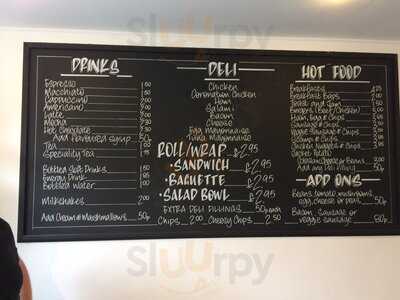 DRINKS
Espresso
Macchiato
Cappuccino
Americano
Latte
Mocha
Hot Chocolate
Add Flavoured Syrup 50p
Tea
Speciality Tea
Bottled Soft Drinks
Energy Drink
Bottled Water
Milkshakes
Add Cream & Marshmallows 50p
DELI
Chicken
Coronation Chicken
Ham
Salami
Bacon
Cheese
Egg Mayonnaise
Tuna Mayonnaise
ROLL/WRAP £2.95
·SANDWICH £2.95
·BAGUETTE £2.95
·SALAD BOWL £2.95
EXTRA DELI FILLINGS 50p each
Chips 2.00 Cheesy Chips 2.50
HOT FOOD
Breakfast
Breakfast Baps
Toast and Jam
Burgers (Beef/Chicken)
Ham, Egg & Chips
Sausage & Chips
Veggie Sausage & Chips
Scampi & Chips
Chicken Nuggets & Chips
Jacket Potato
Add any Deli Filling 50p
ADD ONS
Beans, tomato, mushrooms,
egg, cheese or peas 50p
Bacon, Sausage or
veggie sausage 80p
Sluurpy
Sluurpy